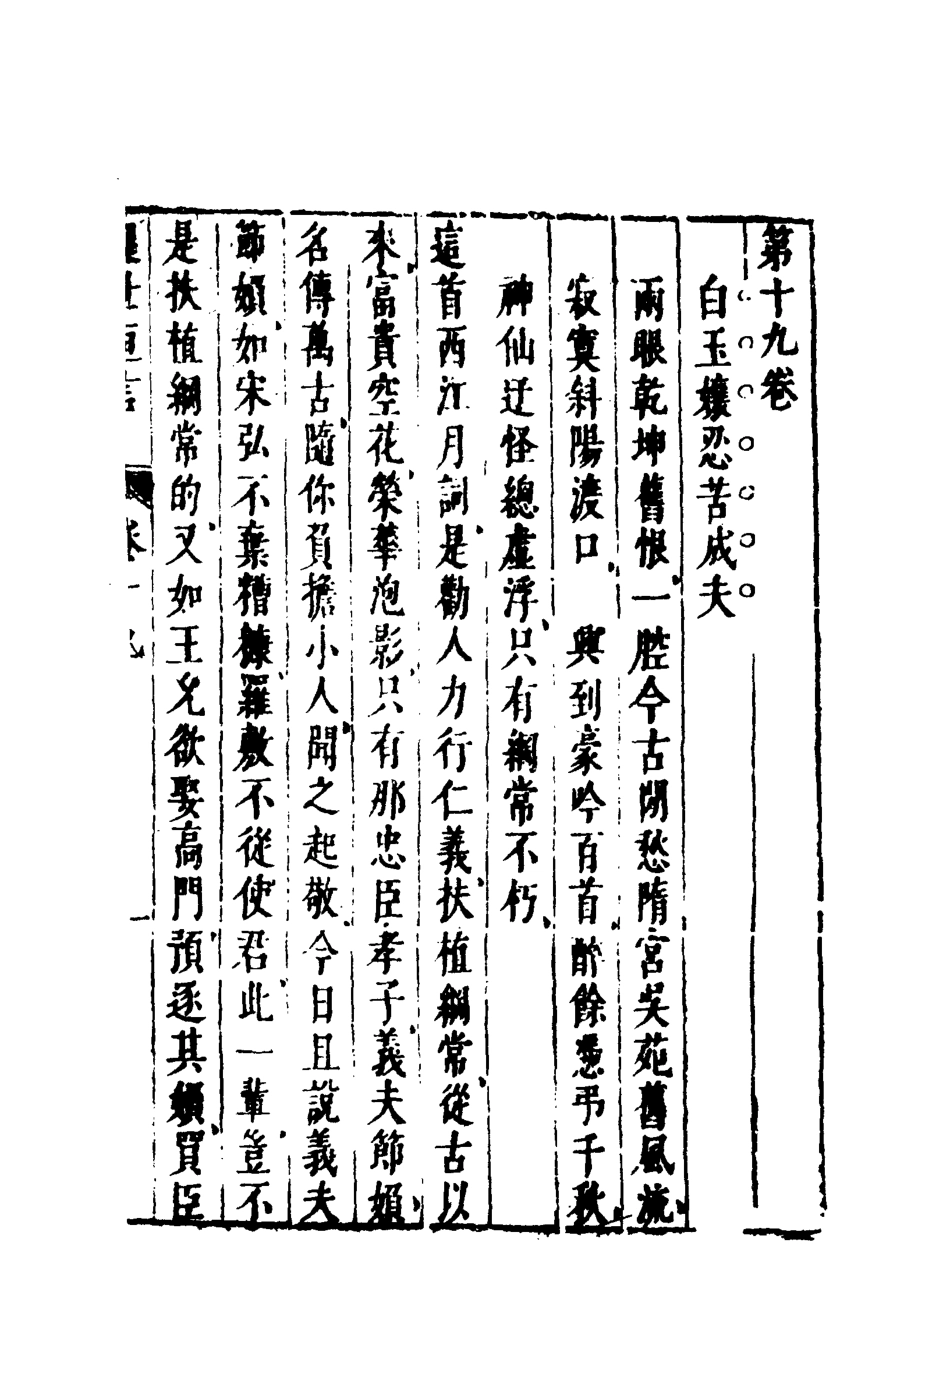 第十九卷
白玉孃忍苦成夫
兩眼乾坤舊恨一腔今古閒愁隋宮吳苑舊風流
寂寞斜陽渡口　興到豪吟百首醉餘凭弔千秋
神仙迂怪總虛浮只有綱常不朽
這首西江月詞是勸人力行仁義扶植綱常從古以
來富貴空花榮華泡影只有那忠臣孝子義夫節婦
名傳萬古隨你負擔小人聞之起敬今日且說義夫
節婦如宋弘不棄糟糠羅敷不從使君此一輩豈不
是扶植綱常的又如王允欲娶高門預逐其婦買臣
醒世恒言　卷十九　一